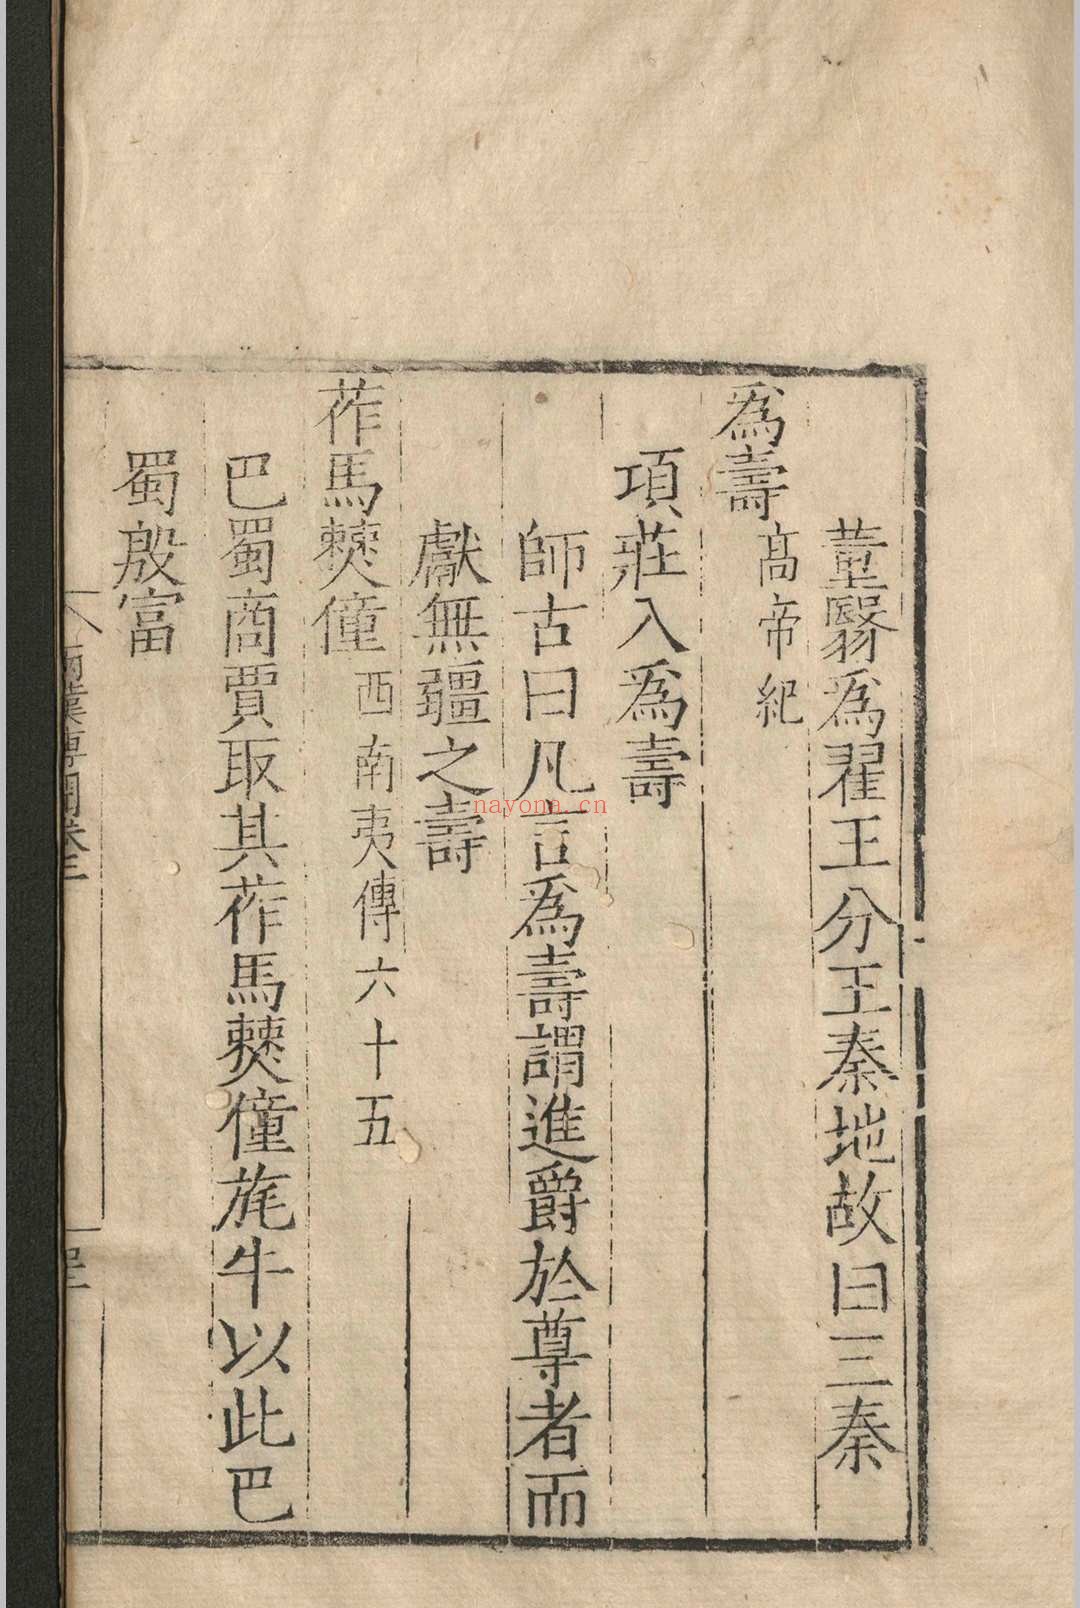 董翳爲翟王分王秦地故曰三秦
爲壽高帝紀
項莊入爲壽
師古曰凡言爲壽謂進爵於尊者而
獻無疆之壽
莋馬僰僮西南夷傳六十五
巴蜀商賈取其莋馬僰僮旄牛以此巴
蜀殷富
兩漢博聞卷三
nayona.cn